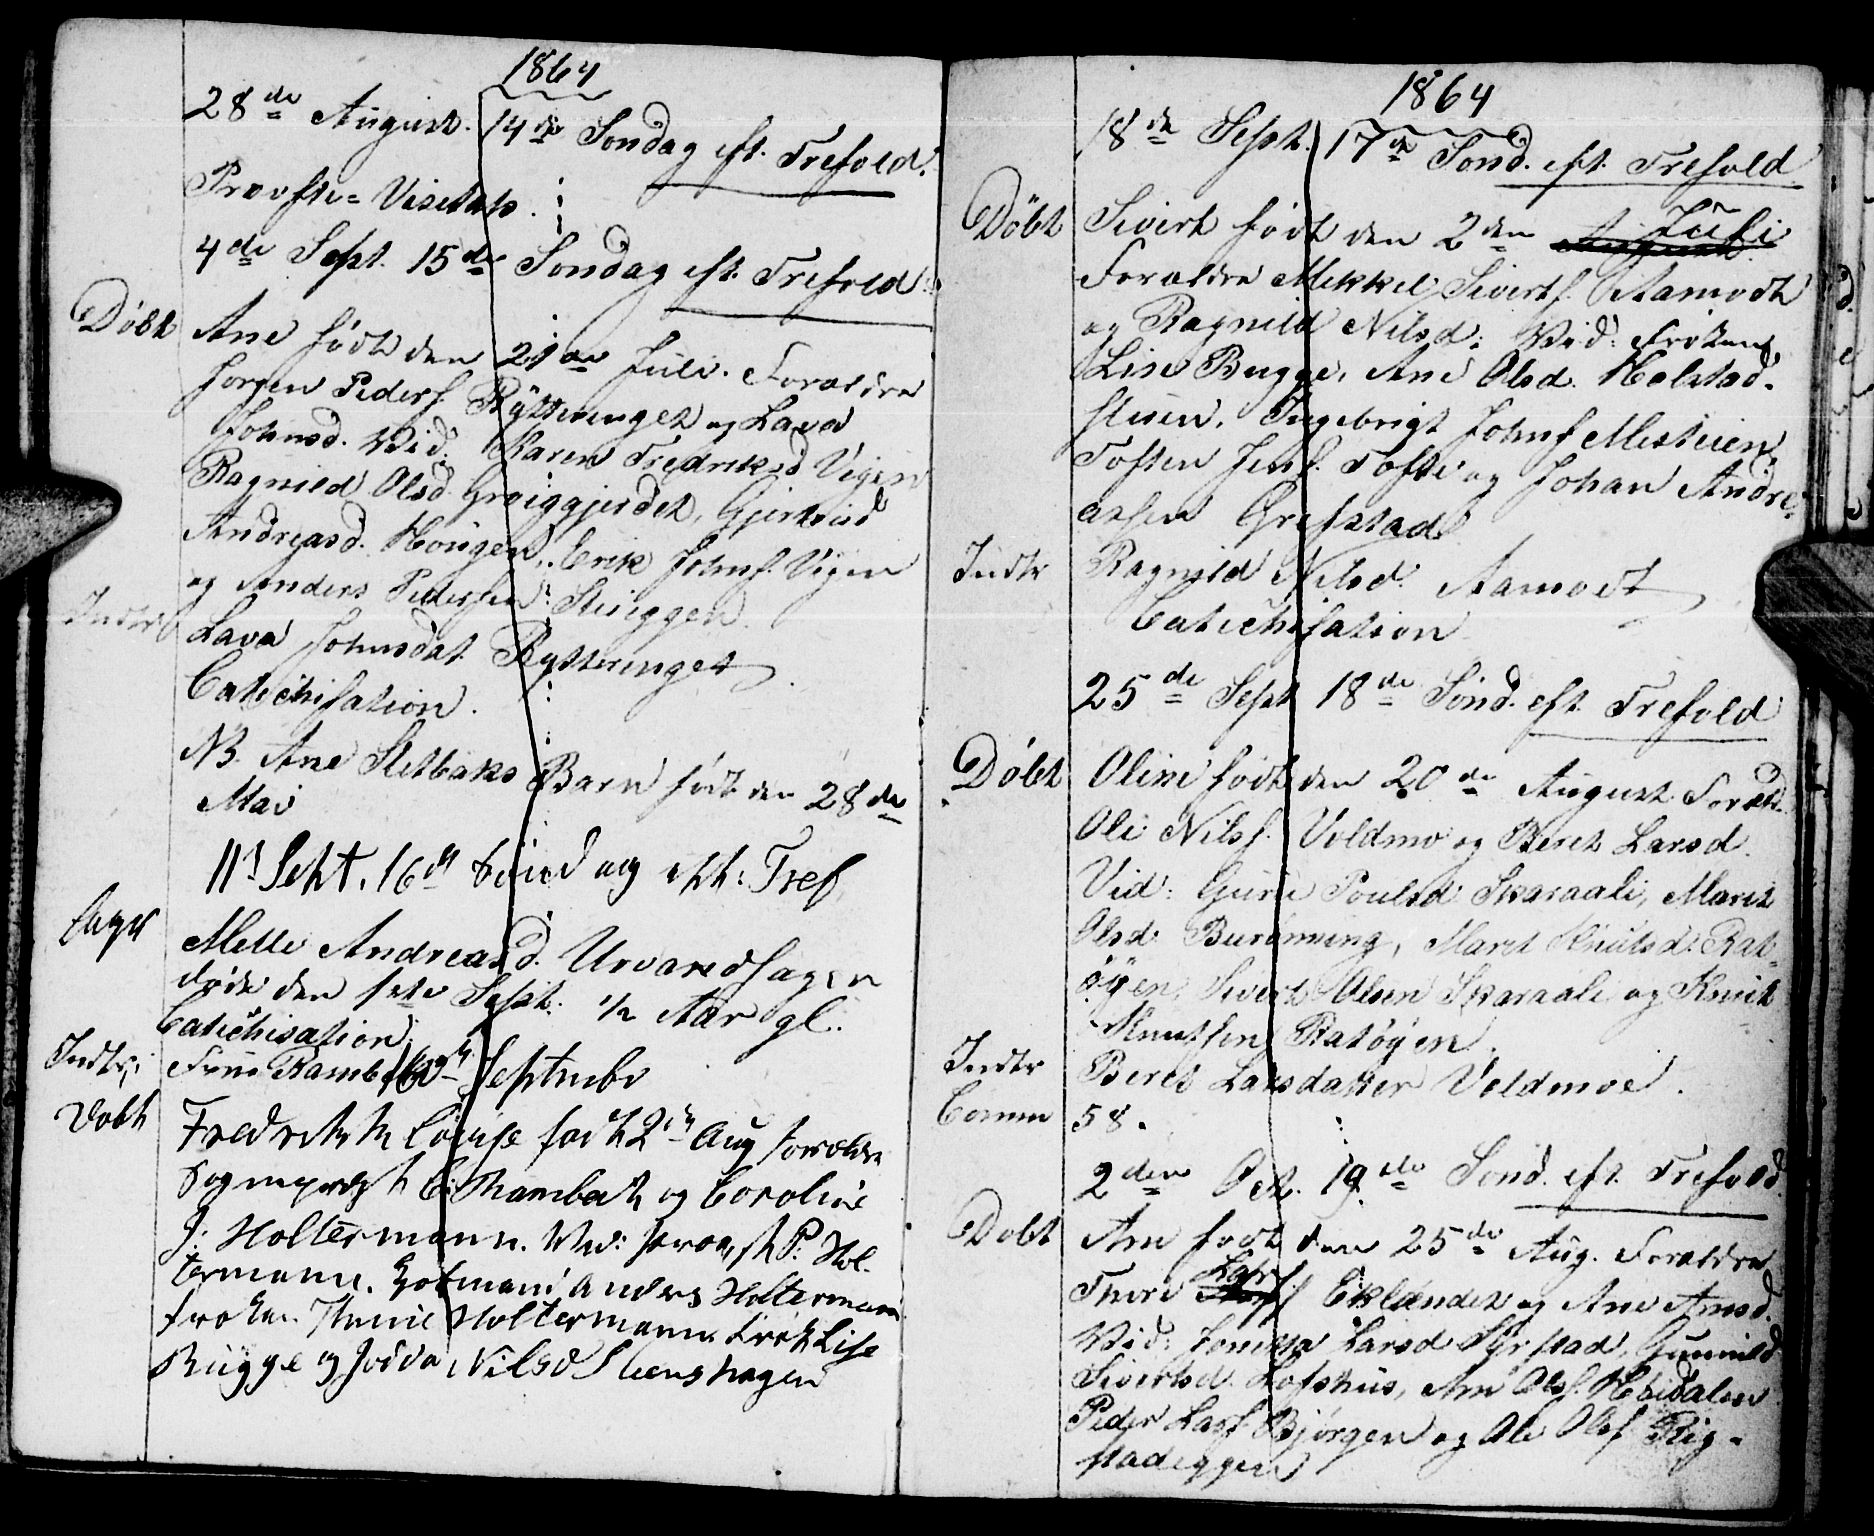 1864
28de August. 14de Søndag eft. Trefold.
Provste-Visitats.
4de Sept. 15de Søndag eft. Trefold.
Døbt Ane født den 21de Juli. Forældre
Jørgen Peders. Rytterenget og Lava
Johnsd. Vid: Karen Fredriksd Vigen
Ragnild Olsd. Greiggjerdet, Gjertrud
Andreasd. Hougen, Erik Johns. Vigen
og Anders Pedersen Skuggen.
Indtr Lava Johnsdat. Rytterenget
Catechisation.
NB. Ane Sletbaks Barn født den 28de
Mai
11t Sept. 16de Søndag eft: Tref
Mette Andreasd. Urvandhagen
døde den 1ste Sept. 1/2 Aar gl.
Catechisation
Indtr: Frue Rambech Septembr
Døbt Louise født 2de Aug Forældre
Sogneprest C. Rambech og Caroline
J: Holtermann. Vid: P: Hol-
termann. Anders Holtermann
Frøken Holtermann Frøk Lise
Bugge og Jodda Nilsd Steenshagen
1864
18de Sept. 17de Sønd. eft. Trefold.
Døbt Sivert født den 2den August Juli
Forældre Mikkel Siverts. Aamodt
og Ragnild Nilsd: Vid: Frøken
Lise Bugge, Ane Olsd. Halstad-
stuen, Ingebrigt Johns Mestuen,
Tosten Jens. Tofte og Johan Andre-
assen Grefstad
Indtr Ragnild Nilsd: Aamodt
Catechisation
25de Sept 18de Sønd. eft. Trefold
Døbt Oline født den 20de August Foræld.
Ole Nilss. Voldmo og Beret Larsd.
Vid: Guru Poulsd Skaraali, Marit
Olsd Burønning, Marit Knutsd. Rat-
øyen, Sivert Olsen Skaraali og Knut
Knutsen Ratøyen.
Indtr Beret Larsdatter Voldmoe.
Comm 58.
2den Oct. 19de Sønd. eft. Trefold.
Døbt Ane født den 25de Aug. Forældre
Thore Lars Eklændet og Ane Arnsd.
Vid: Larsd Gunnild
Sivertsd. Lofshus, Arn Ols.
Peder Lars Bjørgen og Ole Ols Rig-
stadeggen